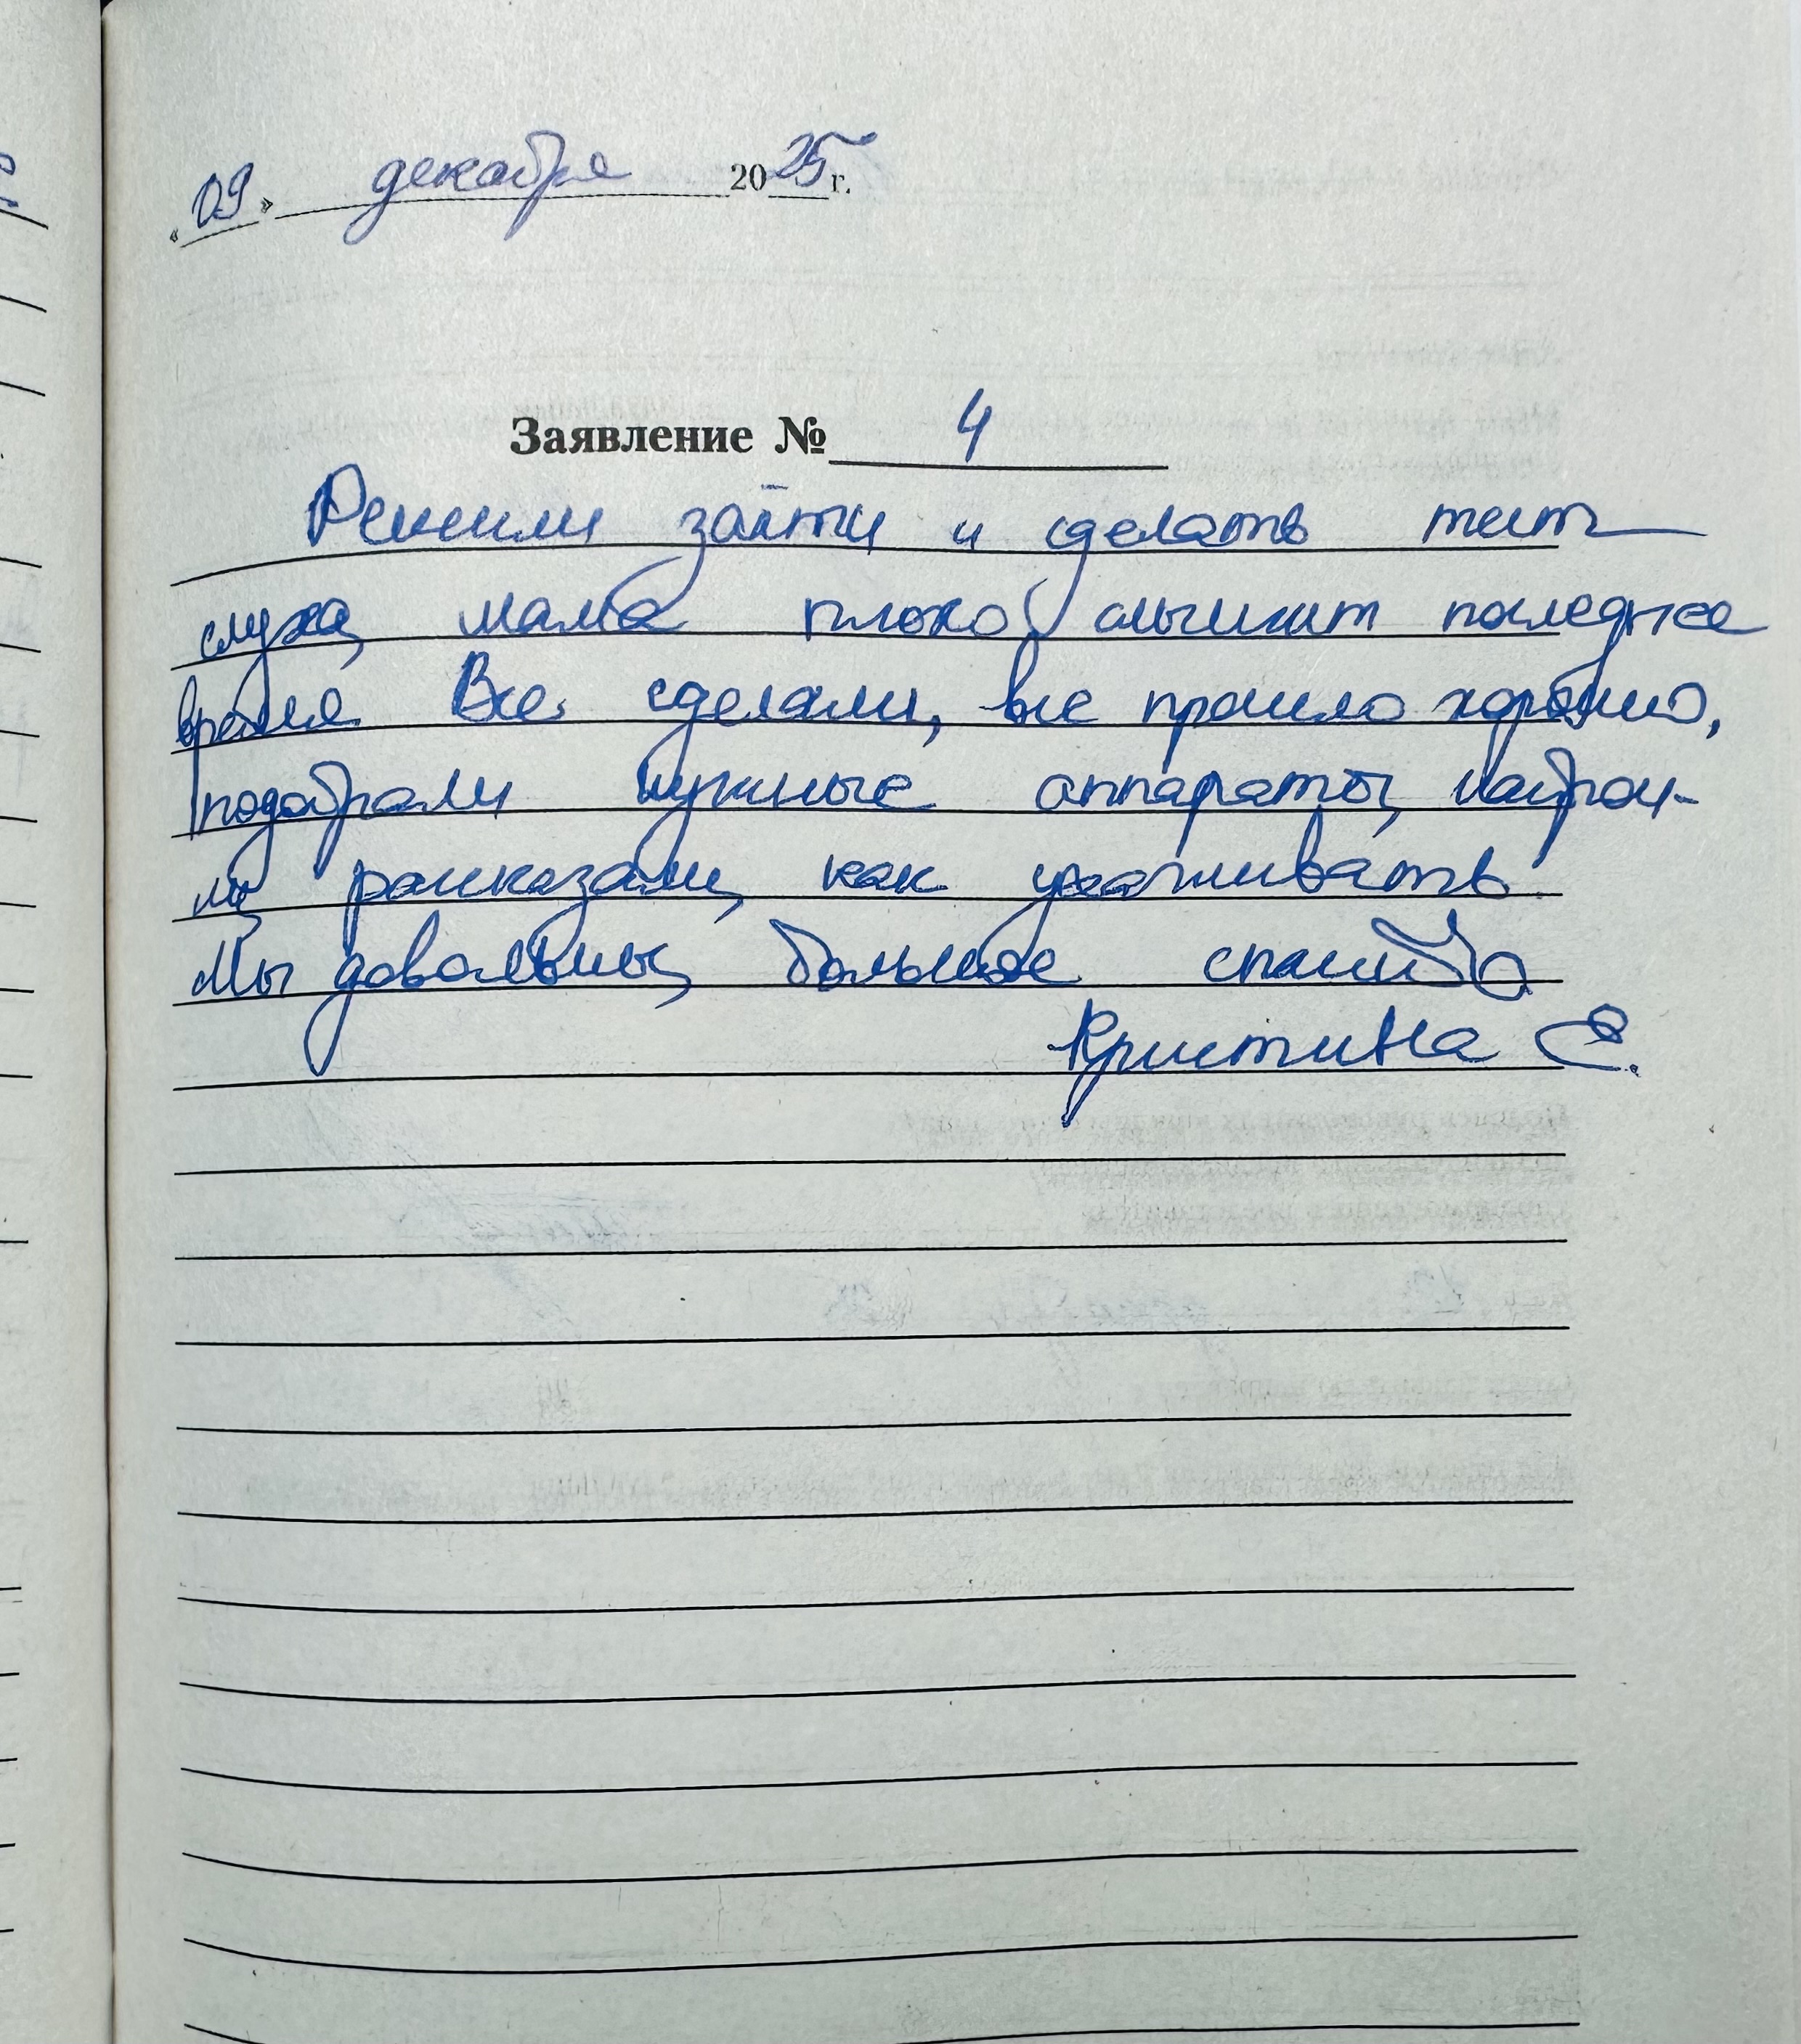 «09» декабря 2025 г.
Заявление № 4
Решили зайти и сделать тест
слуха, мама плохо слышит последнее
время. Все сделали, все прошло хорошо,
подобрали нужные аппараты, настрои-
ли, рассказали, как ухаживать.
Мы довольны, большое спасибо
Кристина Е.